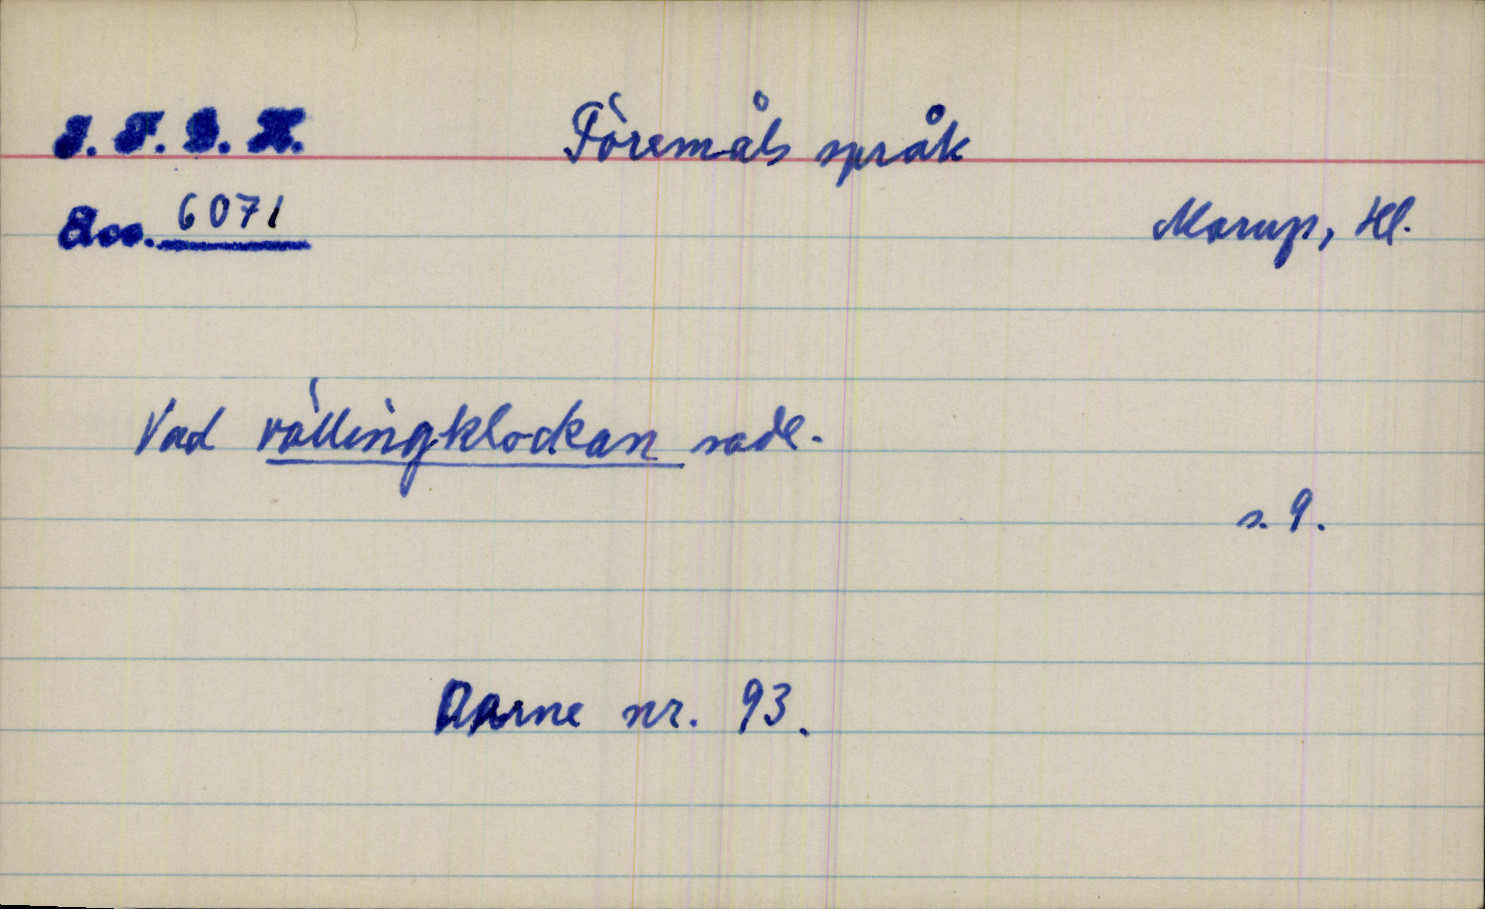 I. F. G. H.
Föremåls språk
Acc. 6071
Morup, Hl.
Vad vällingklockan sade.
s. 9.
Aarne nr. 93.